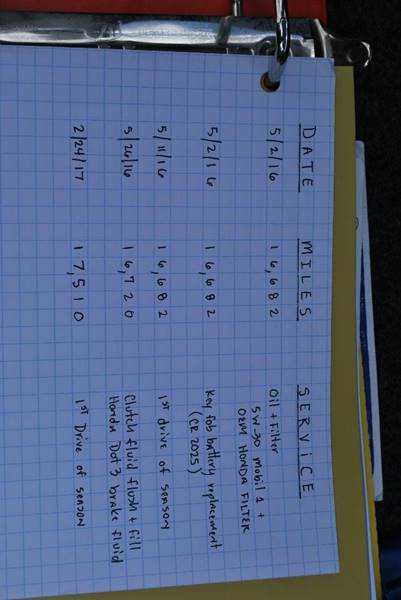 DATE MILES SERVICE
5/2/16 16,682 Oil + Filter
5W-30 Mobil 1 +
OEM HONDA FILTER
5/2/16 16,682 Key fob battery replacement
(CR 2025)
5/11/16 16,682 1ST drive of season
5/26/16 16,720 Clutch fluid flush + fill
Honda Dot 3 brake fluid
2/24/17 17,510 1ST Drive of season